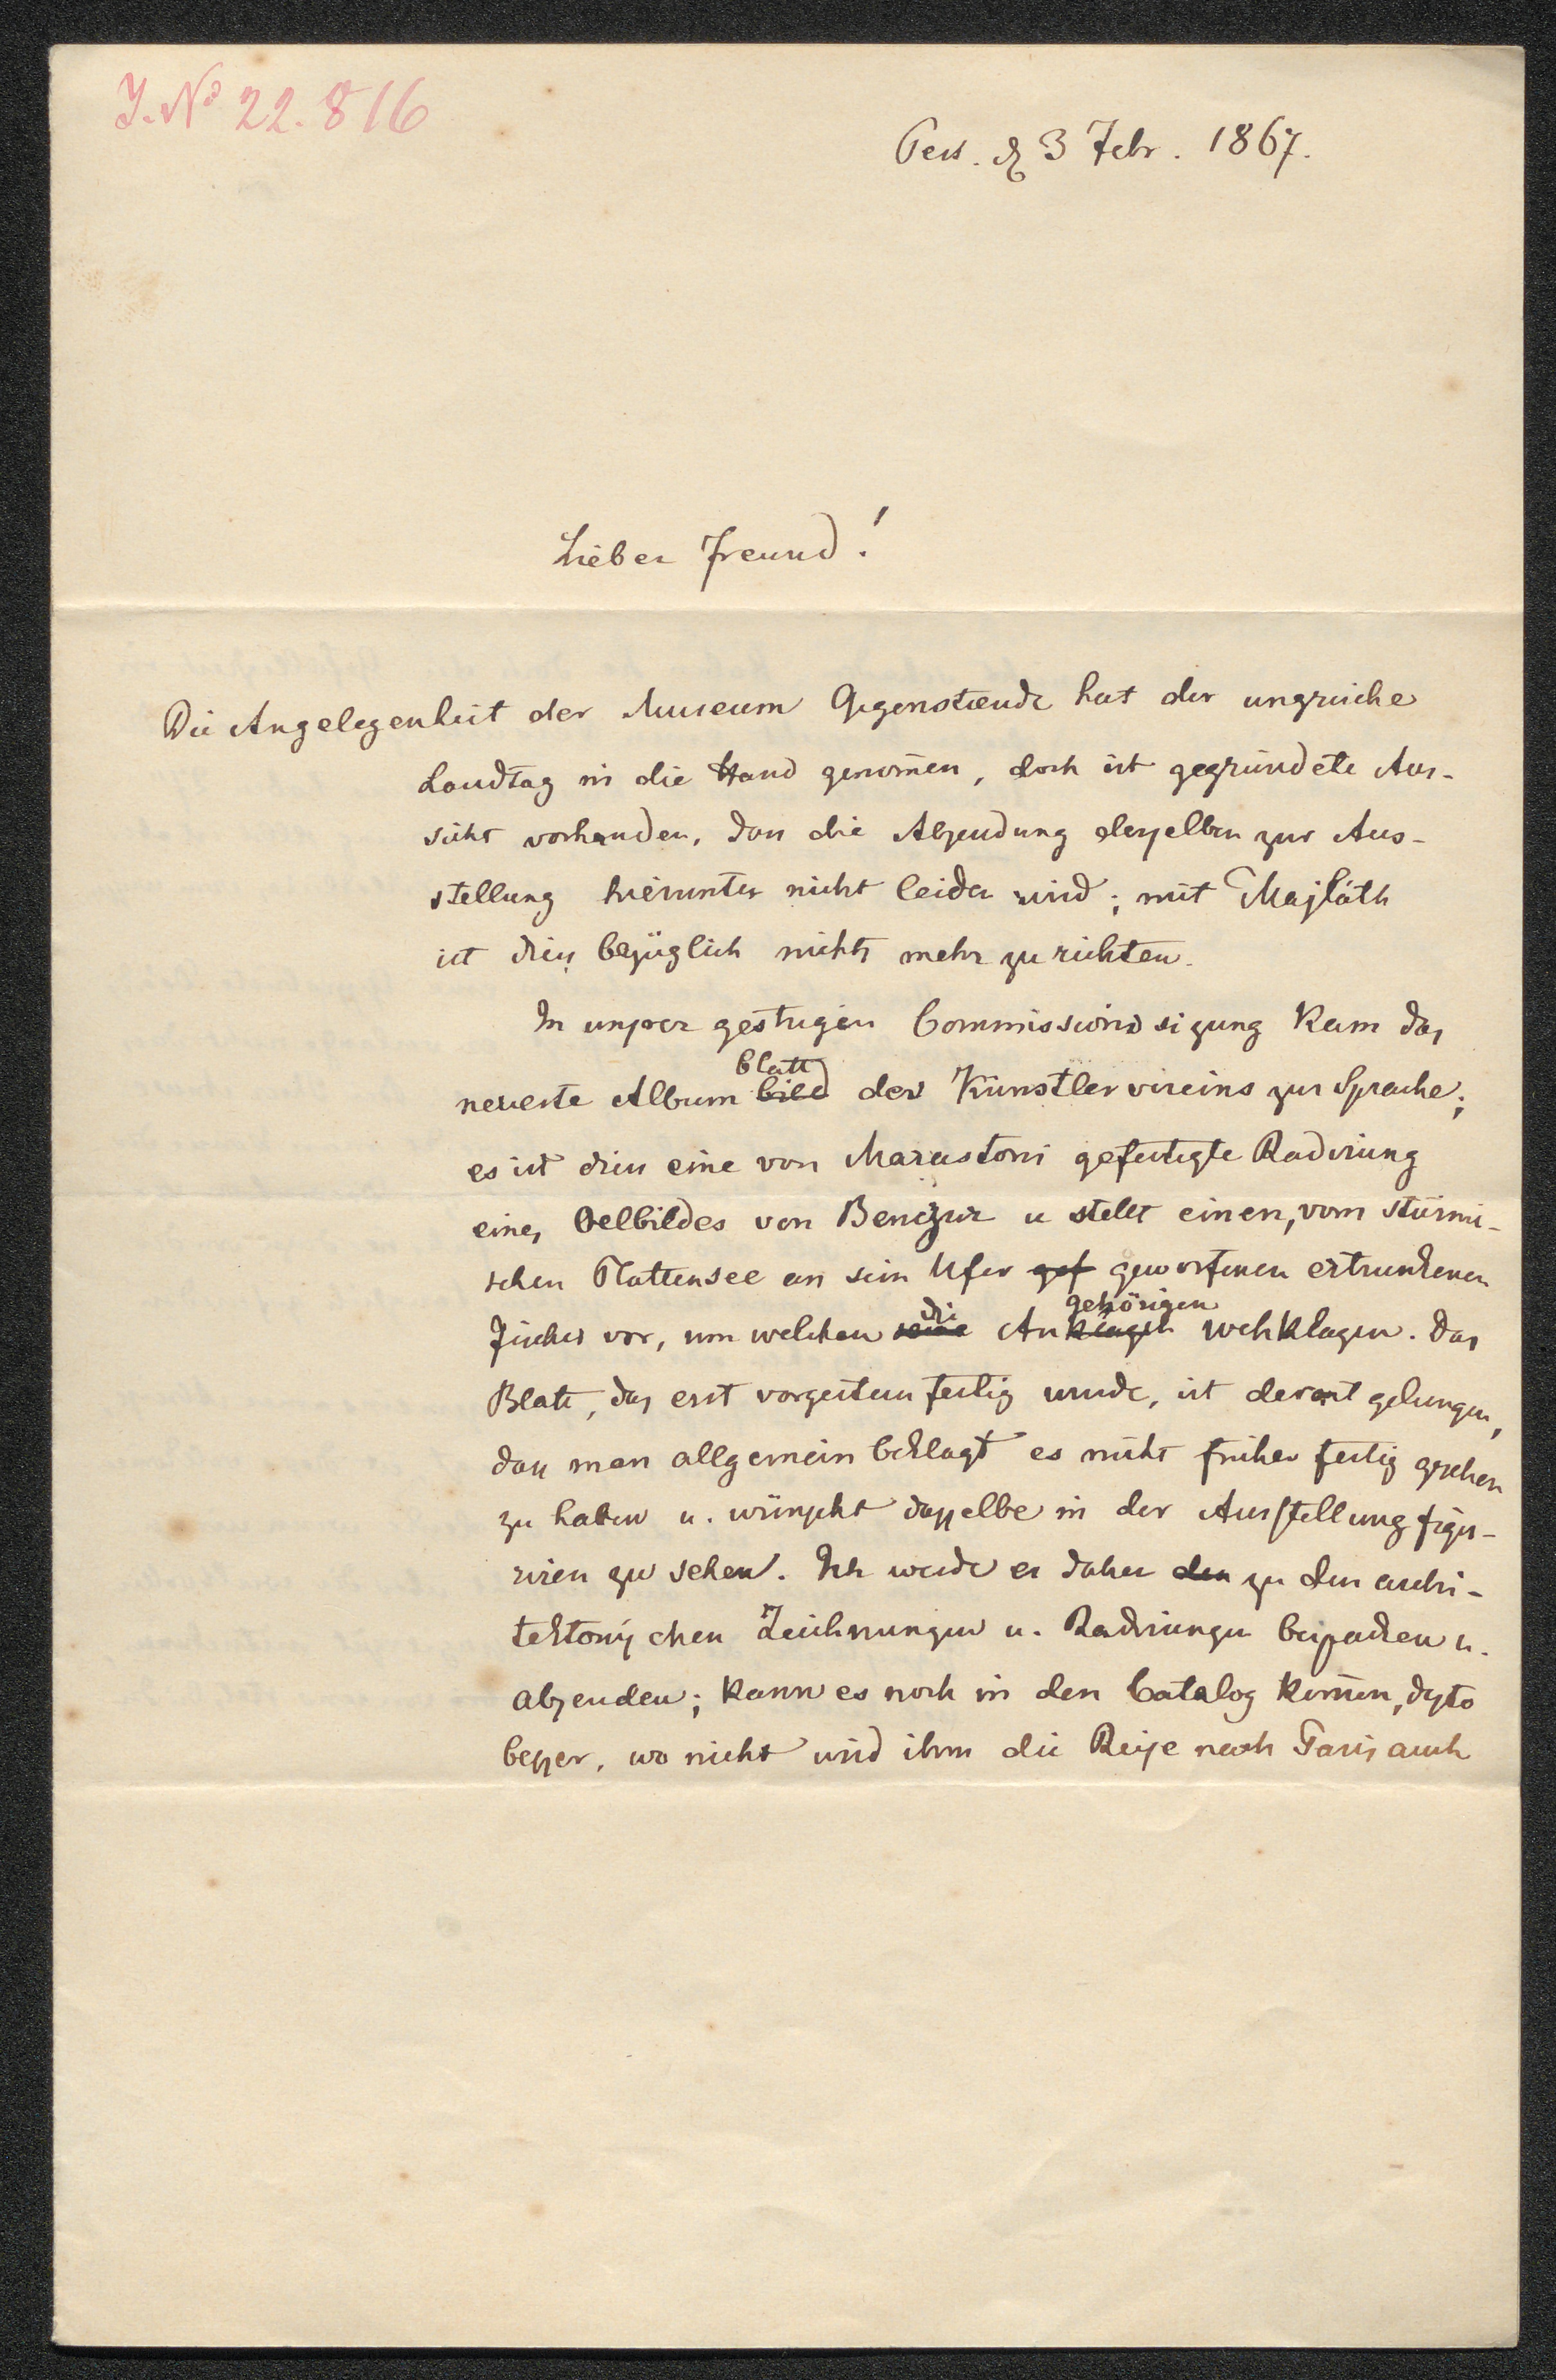 J. No 22.816
Pest. d 3 Febr. 1867.
Lieber Freund!
Die Angelegenheit der Museum Gegenstænde hat der ungrische
Landtag in die Hand genom̄en, doch ist gegründete Aus-
sicht vorhanden, dass die Absendung derselben zur Aus-
stellung hierunter nicht leiden wird; mit Majláth
ist dies bezüglich nichts mehr zu richten.
In unserer gestrigen Commissionssitzung kam das
blatt
neueste Album bild des Künstlervereins zur Sprache;
es ist dies eine von Marastoni gefertigte Radirung
eines Oelbildes von Benczur u stellt einen, vom stürmi-
schen Plattensee an sein Ufer gef geworfenen ertrunkenen
die gehörigen
Fischer vor, um welchen seine Anklagen wehklagen. Das
Blatt, das erst vorgestern fertig wurde, ist derart gelungen,
dass man allgemein beklagt es nicht früher fertig gesehen
zu haben u. wünscht dasselbe in der Ausstellung figu-
riren zu sehen. Ich werde es daher den zu den archi-
tektonischen Zeichnungen u. Radirungen beipacken u.
absenden; kann es noch in den Catalog kom̄en, desto
besser, wo nicht wird ihm die Reise nach Paris auch